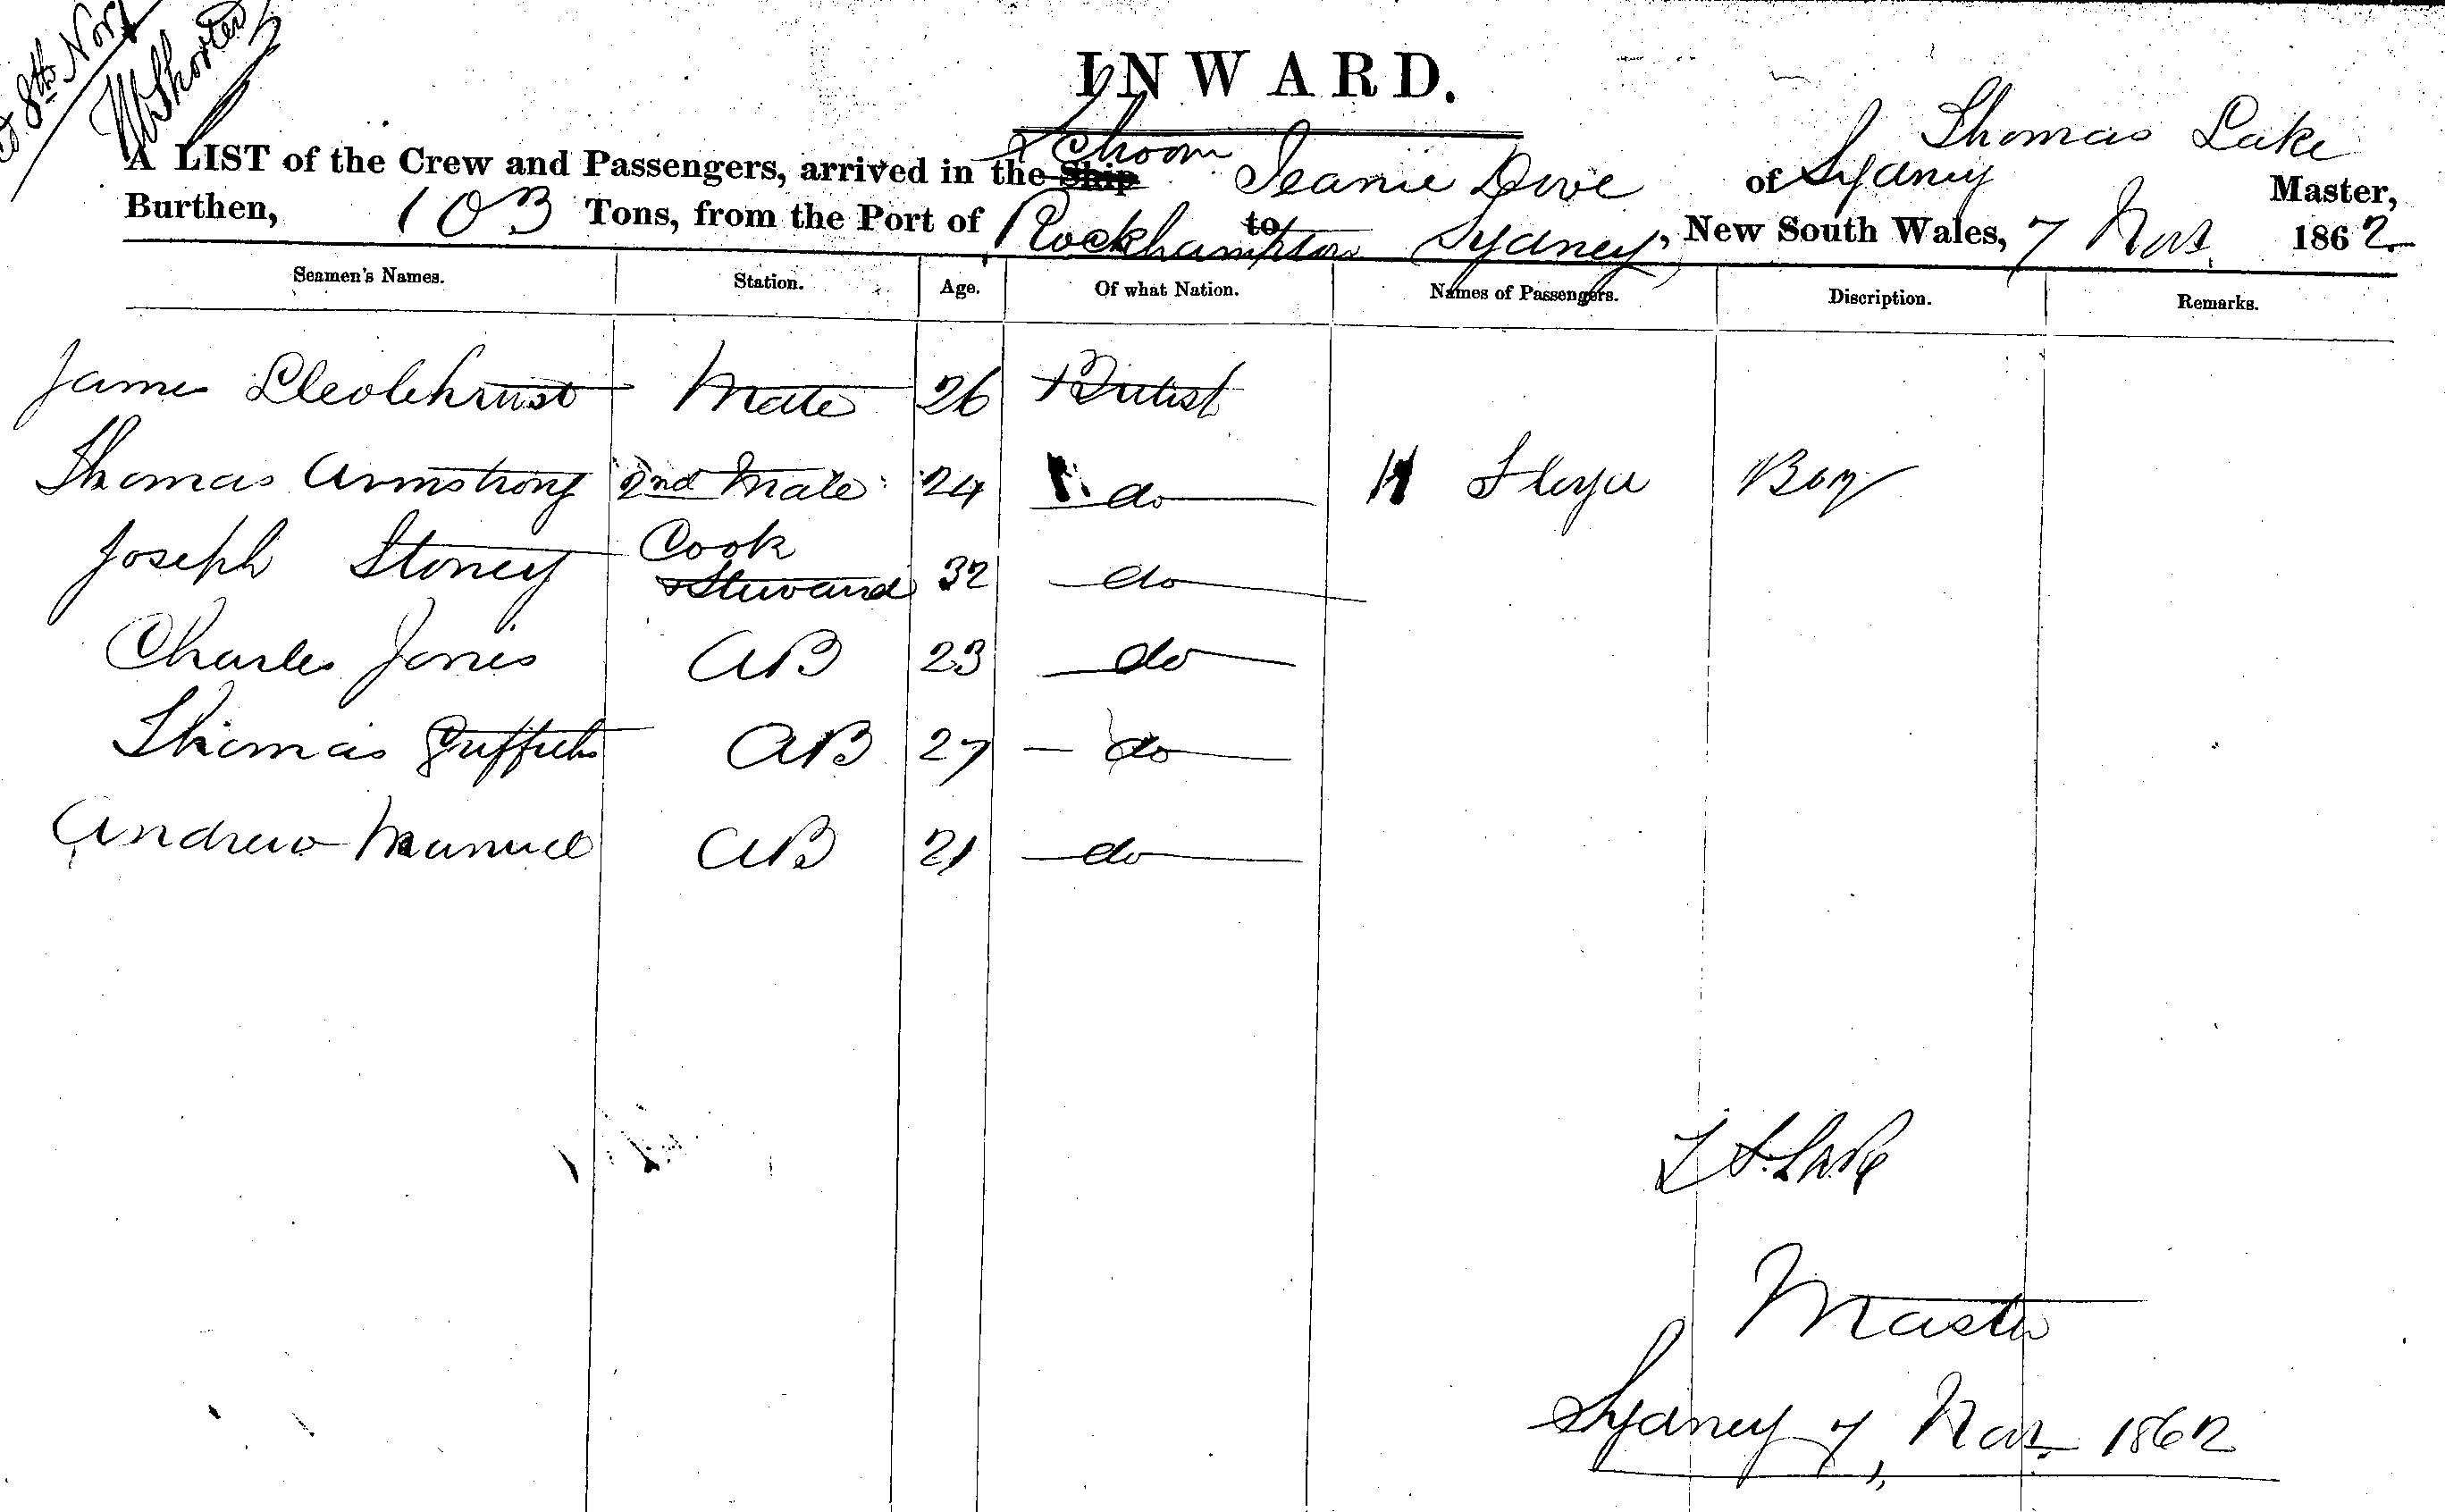 8th Nov
W Shorter
INWARD.
Thomas Lake
A LIST of the Crew and Passengers, arrived in the Ship Schoon Jeanie Dove of Sydney Master,
Burthen, 103 Tons, from the Port of Rockhampton to Sydney, New South Wales, 7 Nov. 1862
Seamen's Names. Station. Age. Of what Nation. Names of Passengers. Discription. Remarks.
James Mate 26 British
Thomas Armstrong 2nd Mate 24 do H Boy
Joseph Stoney Cook
& Steward 32 do
Charles Jones AB 23 do
Thomas Griffith AB 27 do
Andrew Manuel AB 21 do
T S Lake
Master
Sydney 7 Nov. 1862